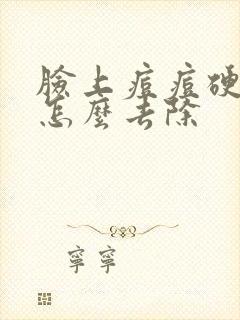 臉上痘痘硬
怎麼去除
寧寧